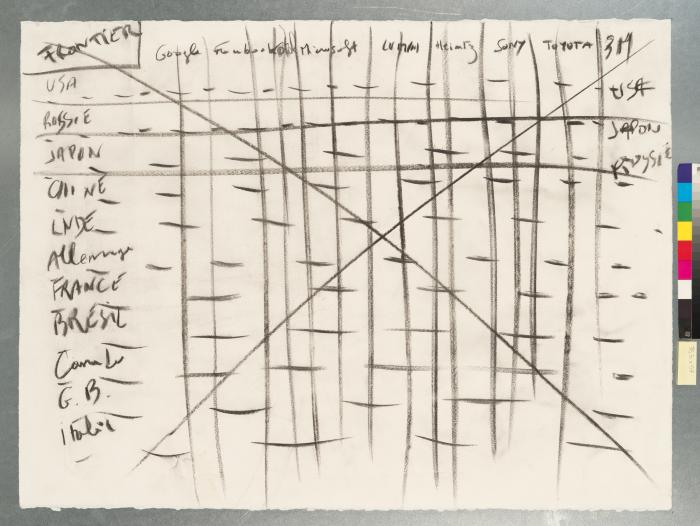 FRONTIER
Google Facebook Microsoft Heintz SONY TOYOTA 3M
USA USA
RUSSIE JAPON
JAPON RUSSIE
CHINE
INDE
Allemagne
FRANCE
BRESIL
Canada
G. B.
italie